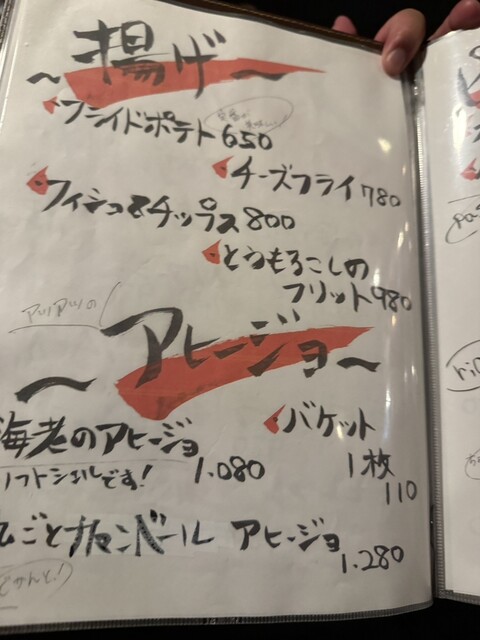 ～揚げ～
フライドポテト 650
チーズフライ 780
フィッシュ&チップス 800
とうもろこしの
フリット 980
アツアツの
～アヒージョ～
海老のアヒージョ
1.080
ソフトシェルです!
バケット
1枚
110
丸ごとカマンベール アヒージョ
1.280
どかんと!